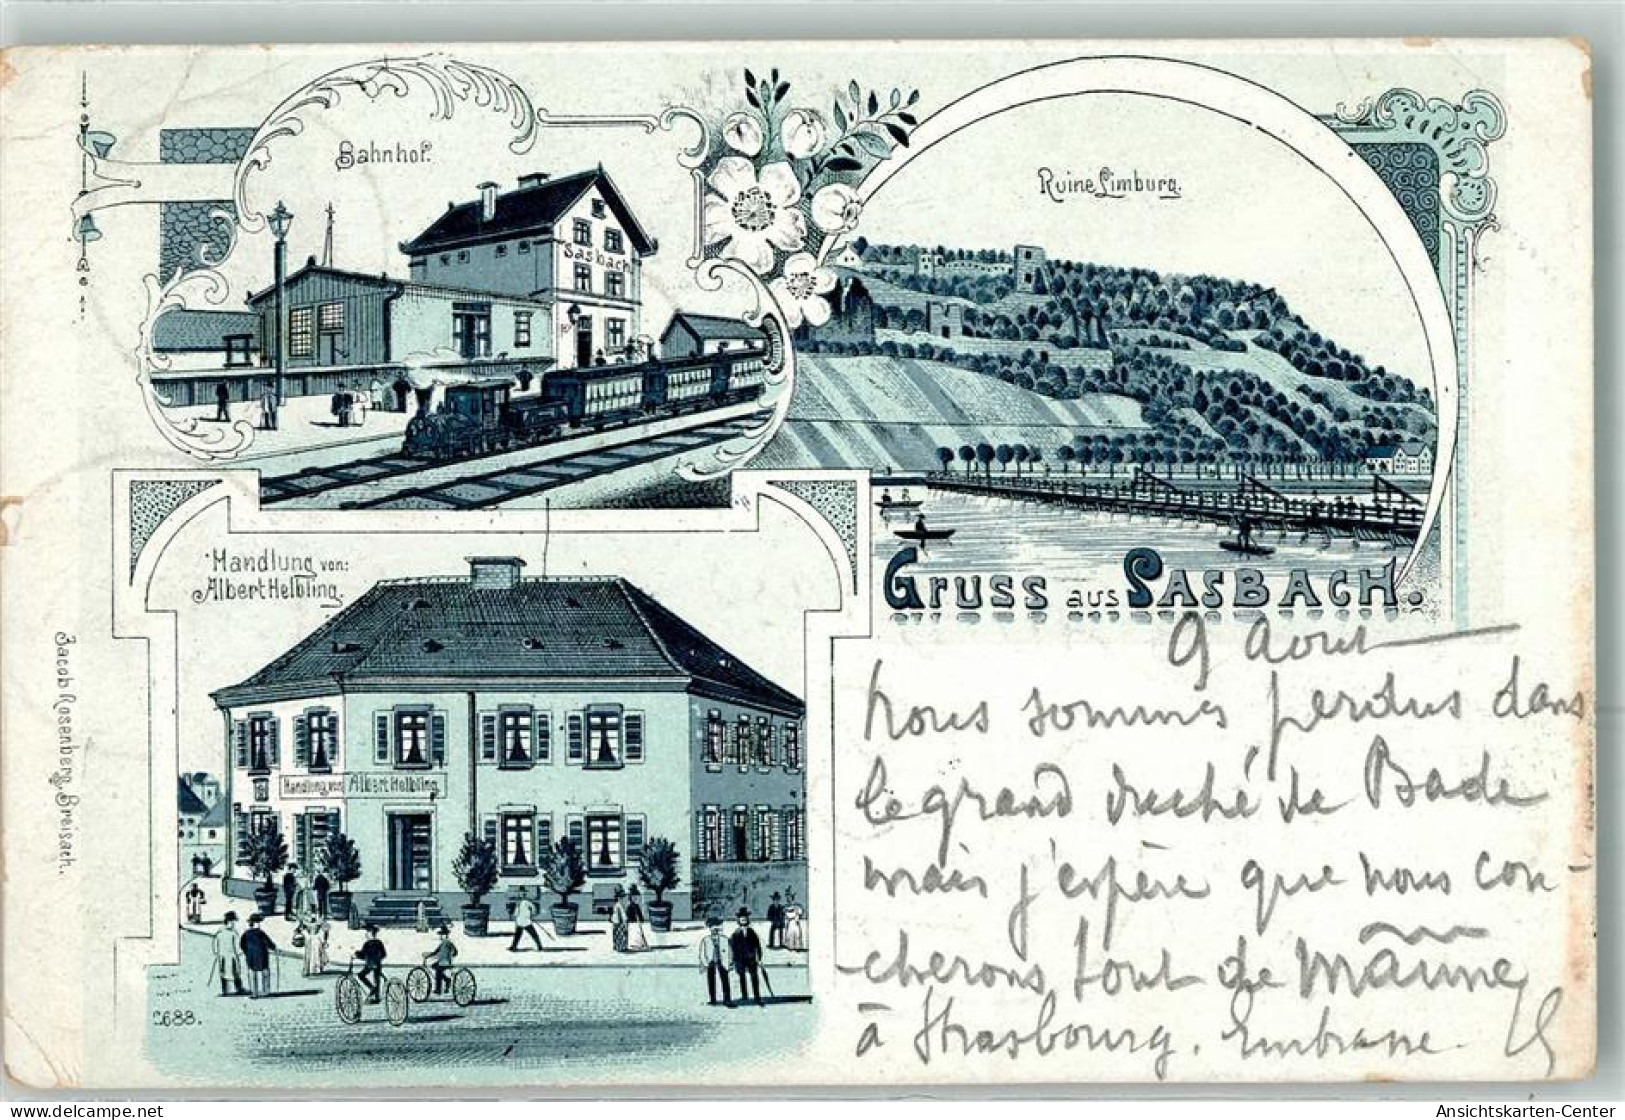 Bahnhof.
Sasbach
Ruine Limburg.
Handlung von:
Albert Helbling.
Handlung von Albert Helbling
Gruss aus Sasbach.
9 Aout
Nous sommes perdus dans
le grand duché de Bade
mais j'espère que nous cou-
cherons tout de même
à Strasbourg. Embrasse.
Jacob Rosenberg, Breisach.
2688.
delcampe.net
Ansichtskarten-Center